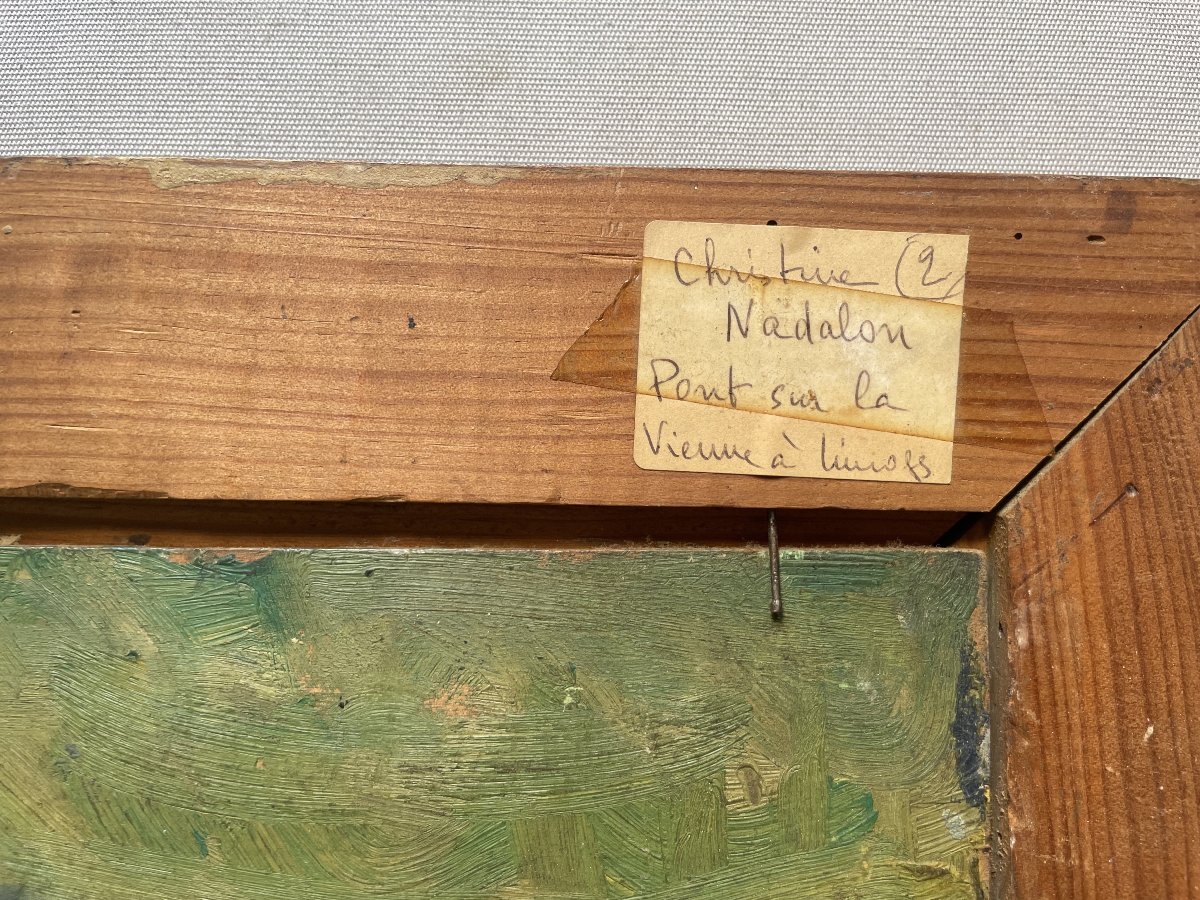 Christine (2)
Nadalon
Pont sur la
Vienne à limoges